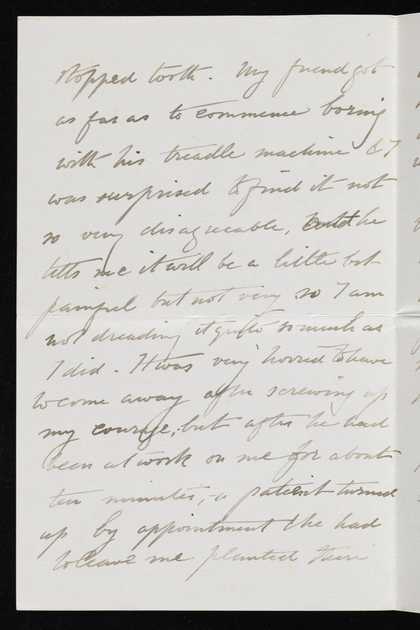 stopped tooth. My friend got
as far as to commence boring
with his treadle machine & I
was surprised to find it not
so very disagreeable, he
tells me it will be a little bit
painful but not very so I am
not dreading it quite so much as
I did. It was very horrid to have
to come away after screwing up
my courage, but after he had
been at work on me for about
ten minutes, a patient turned
up by appointment & he had
to leave me planted there